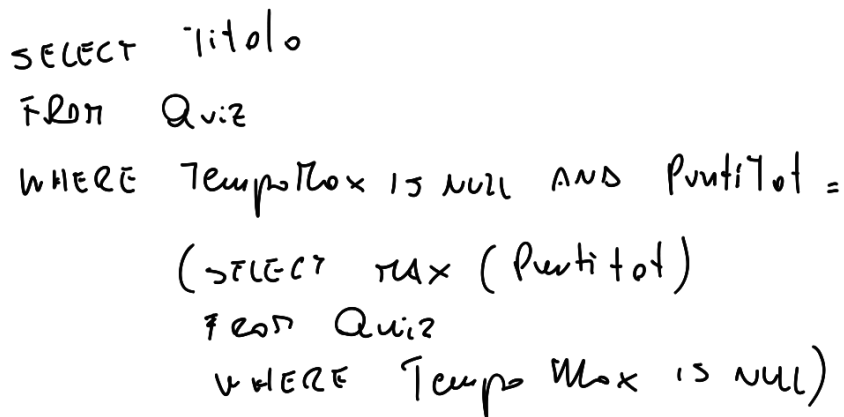 SELECT Titolo
FROM Quiz
WHERE TempoMax IS NULL AND PuntiTot =
(SELECT MAX (Puntitot)
FROM Quiz
WHERE TempoMax IS NULL)